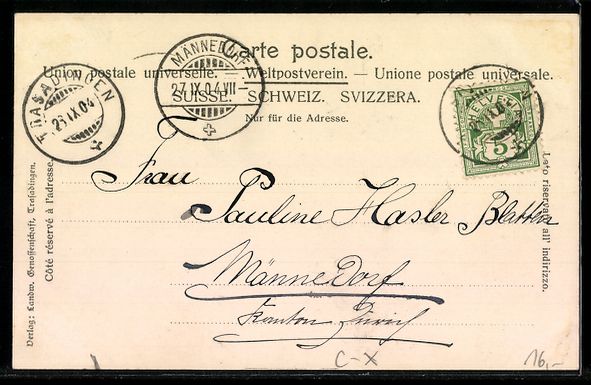 Carte postale.
Union postale universelle. — Weltpostverein. — Unione postale universale.
SUISSE. SCHWEIZ. SVIZZERA.
Nur für die Adresse.
TRASADINGEN
26.IX.04
MÄNNEDORF
27.IX.04.VII—
HELVETIA
5
Frau
Pauline Hasler Blattler
Männedorf
Kanton Zürich
Côté réservé à l'adresse.
Verlag: Landw. Genossenschaft, Trasadingen.
Lato riservato all' indirizzo.
C-X
16,-